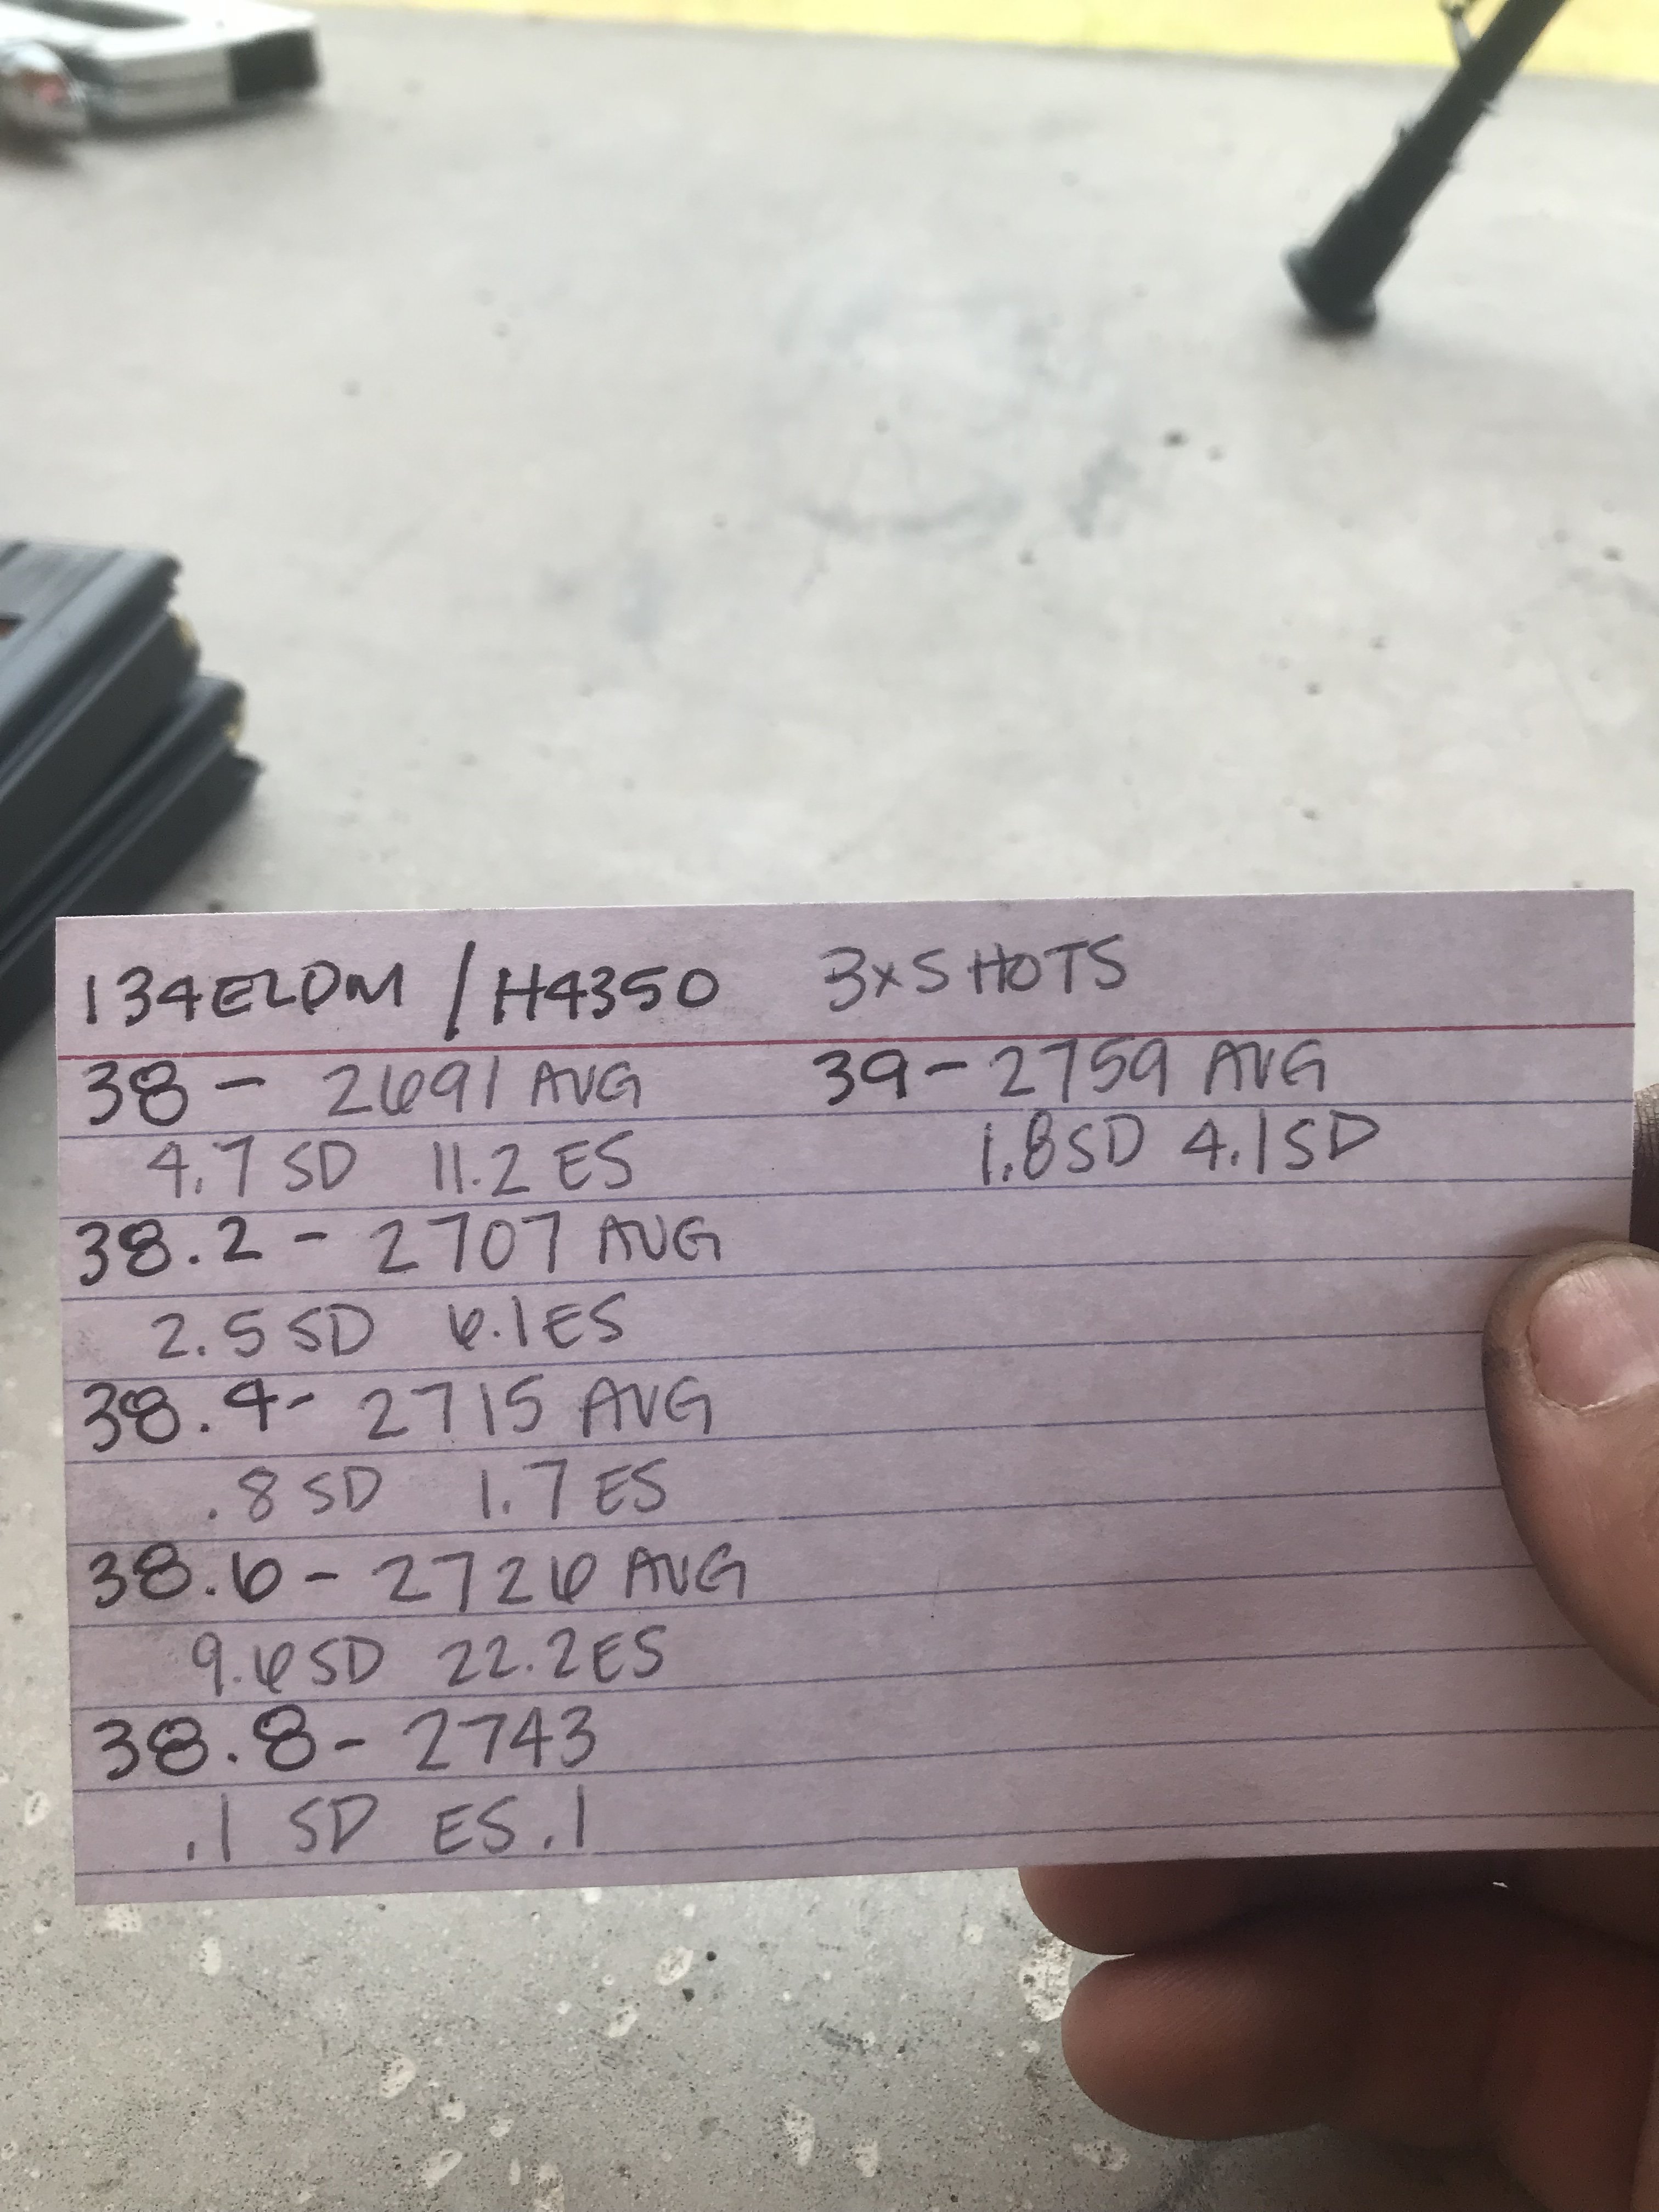 134ELDM / H4350 3xSHOTS
38 - 2691 AVG
4.7 SD 11.2 ES
38.2 - 2707 AVG
2.5 SD 6.1 ES
38.4 - 2715 AVG
.8 SD 1.7 ES
38.6 - 2726 AVG
9.6 SD 22.2 ES
38.8 - 2743
.1 SD ES .1
39 - 2759 AVG
1.8 SD 4.1 SD